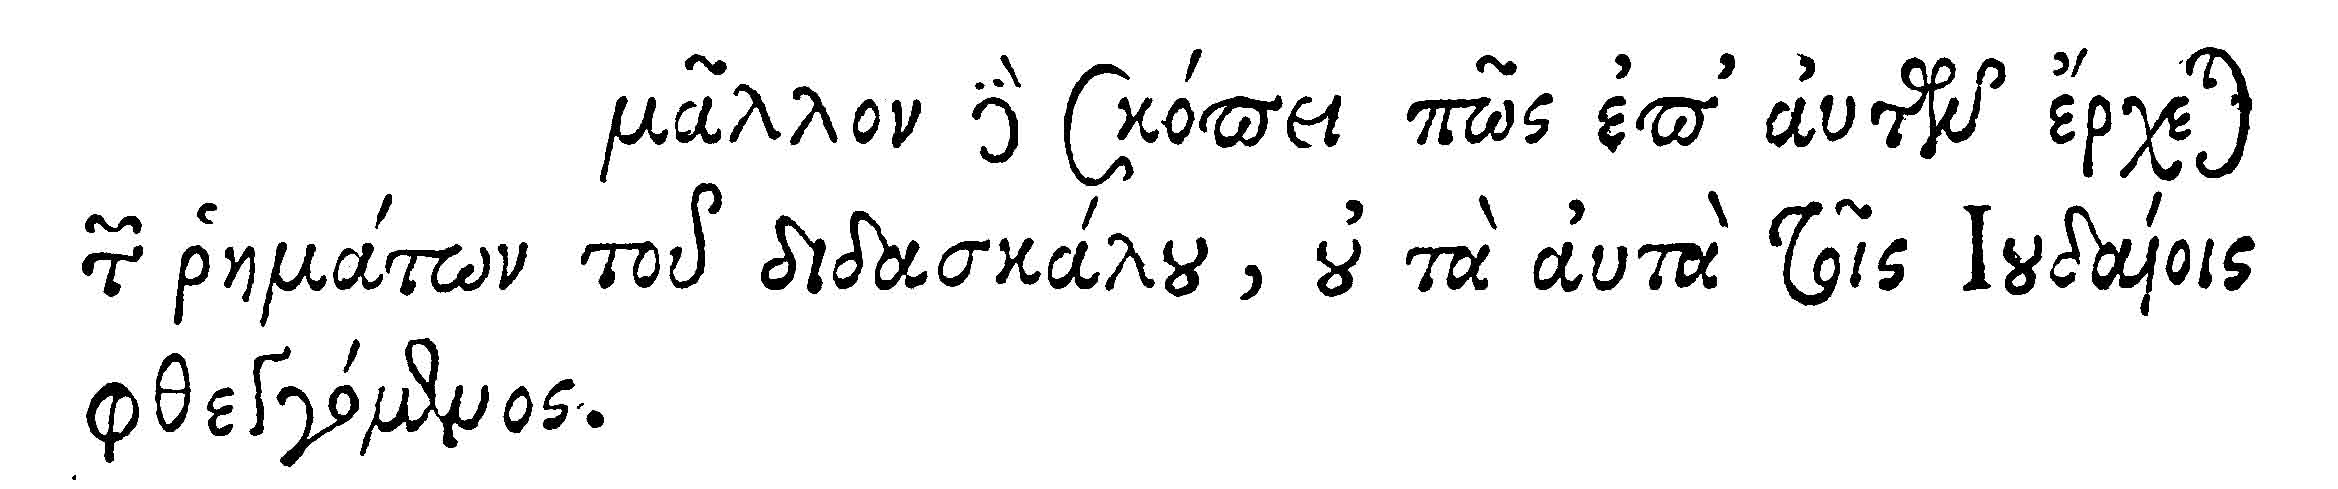 μᾶλλον δὲ σκόπει πῶς ἐπ' αὐτῶν ἔρχεται
τῶν ῥημάτων τοῦ διδασκάλου, οὐ τὰ αὐτὰ τοῖς Ἰουδαίοις
φθεγγόμενος.